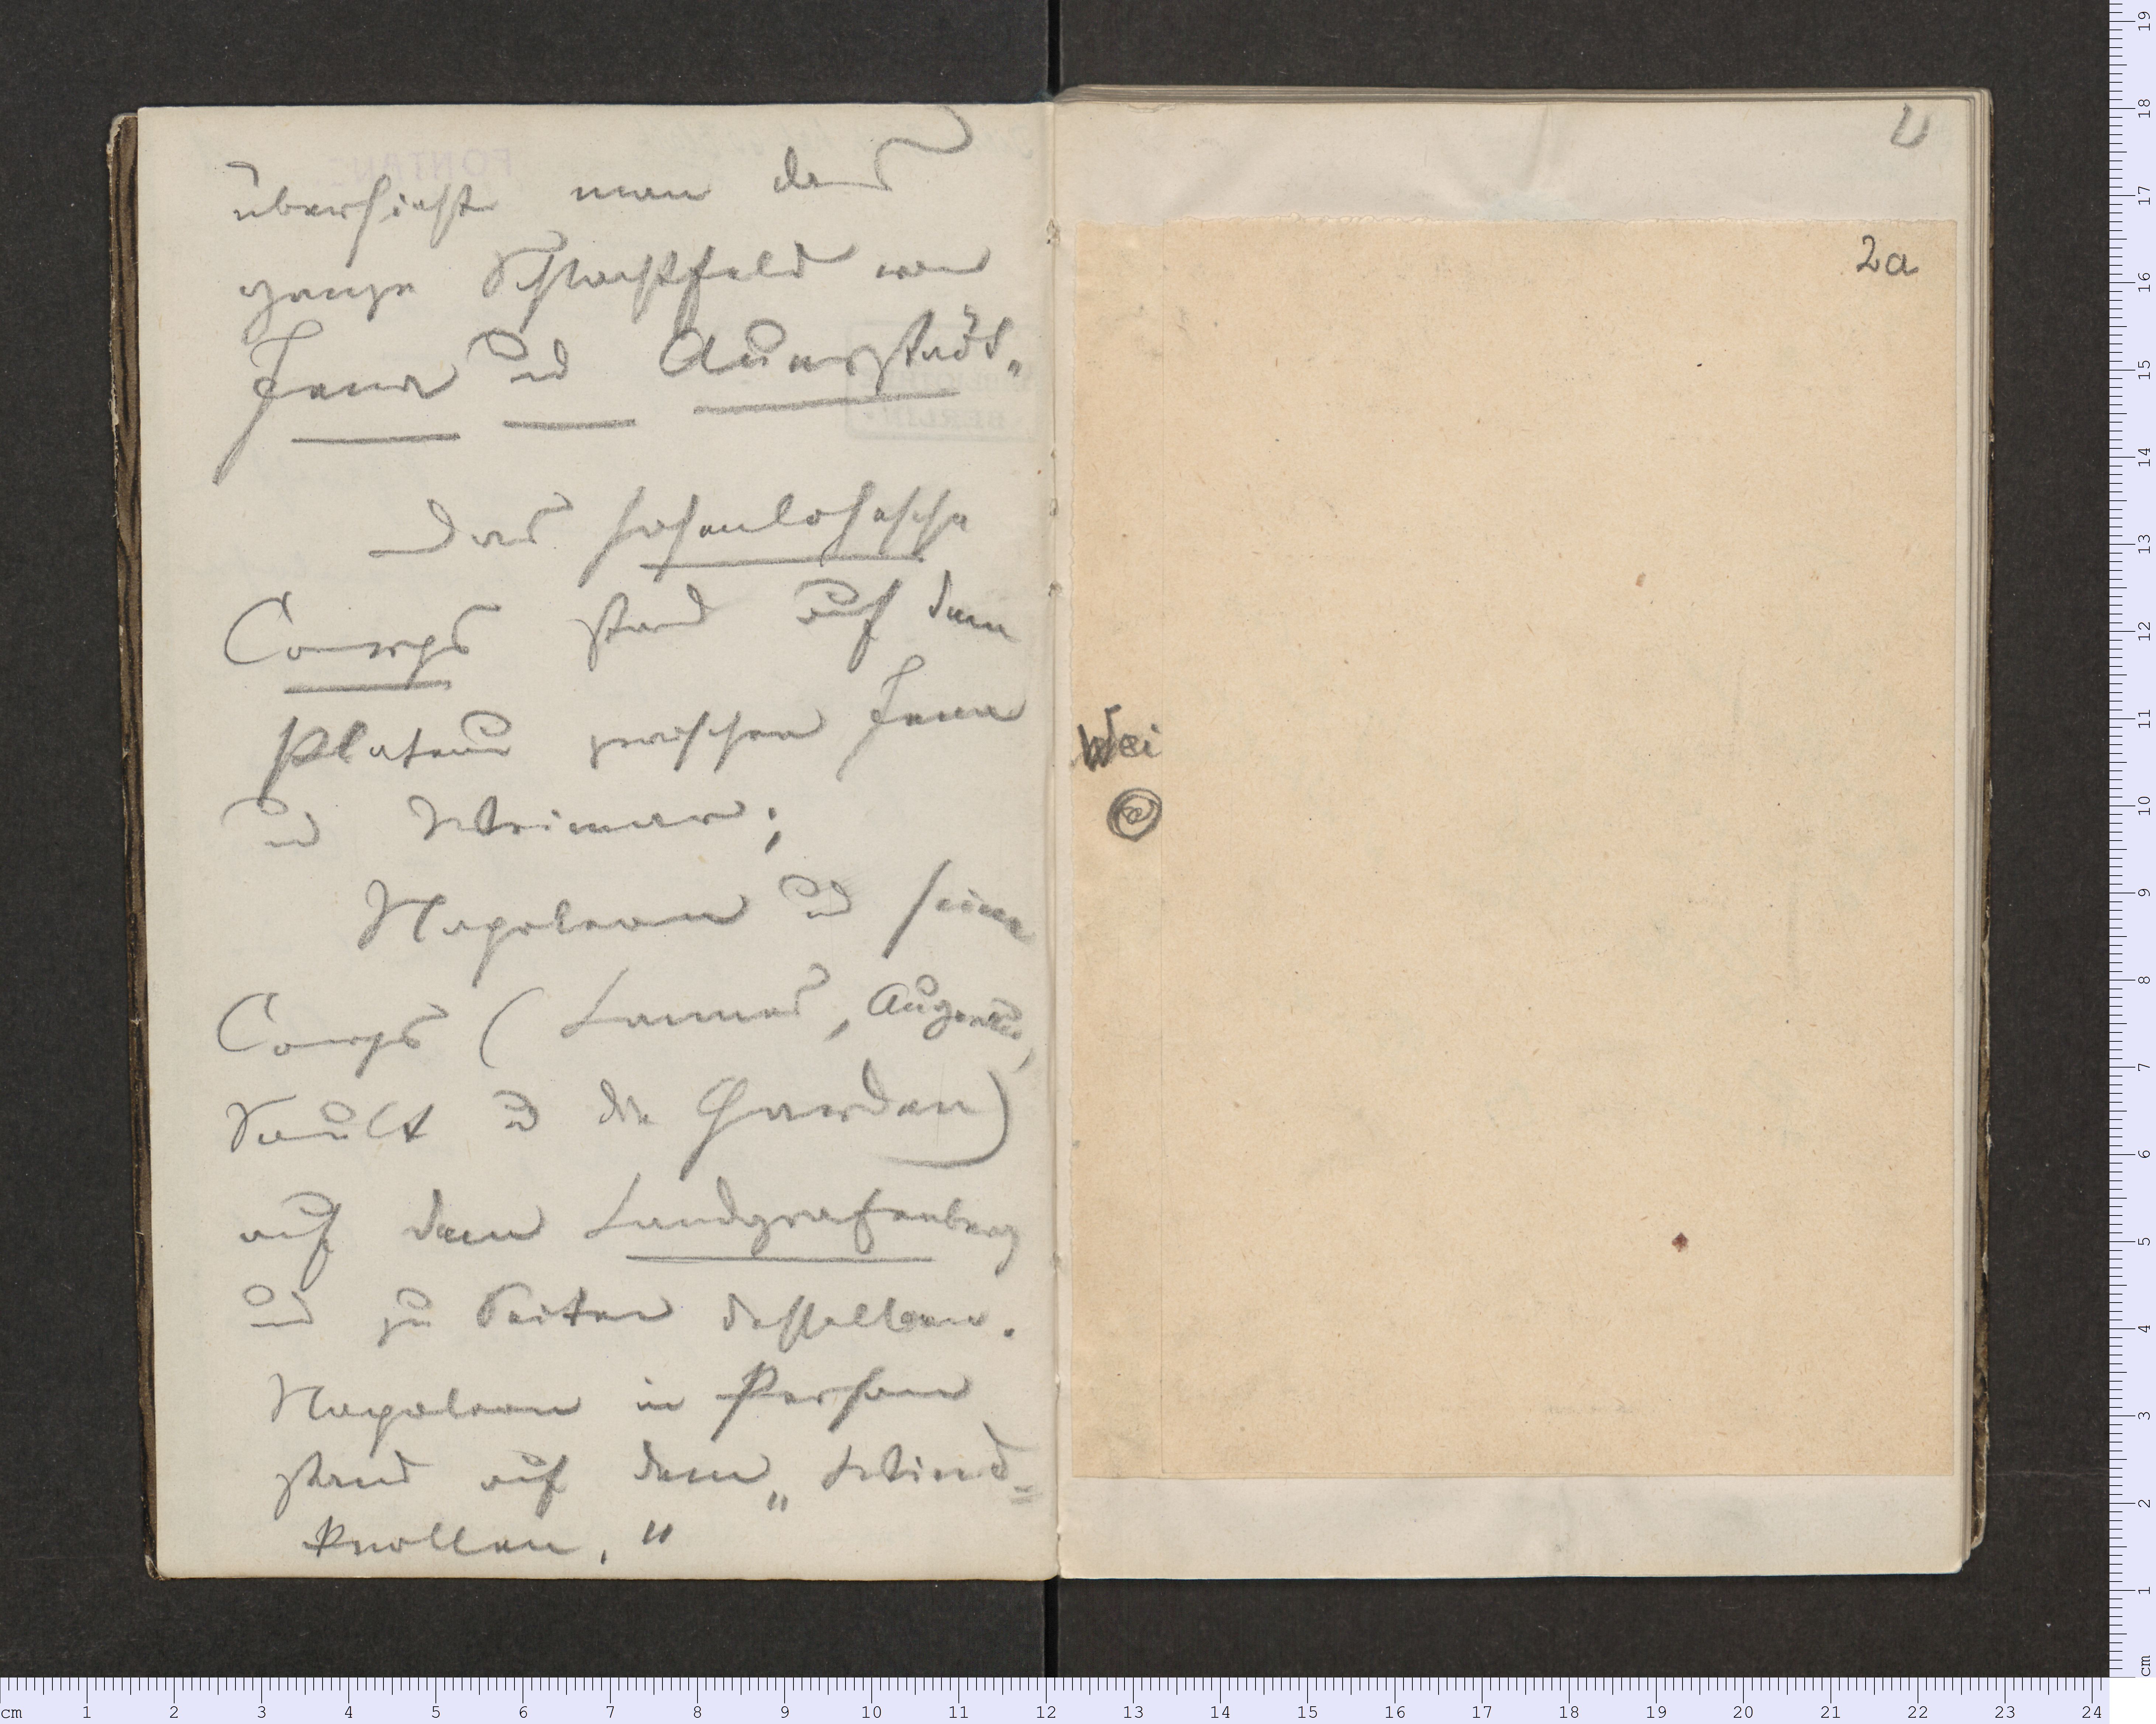 übersieht man das
ganze Schlachtfeld von
Jena und Auerstädt.
Das Hohenlohesche
Corps stand auf dem
Plateau zwischen Jena
und Weimar;
Napoleon und seine
Corps (Lannes, Augereau,
Soult u die Garden)
auf dem Landgrafenberg
und zu Seiten desselben.
Napoleon in Person
stand auf dem „Wind=
knollen."
2a
Wei